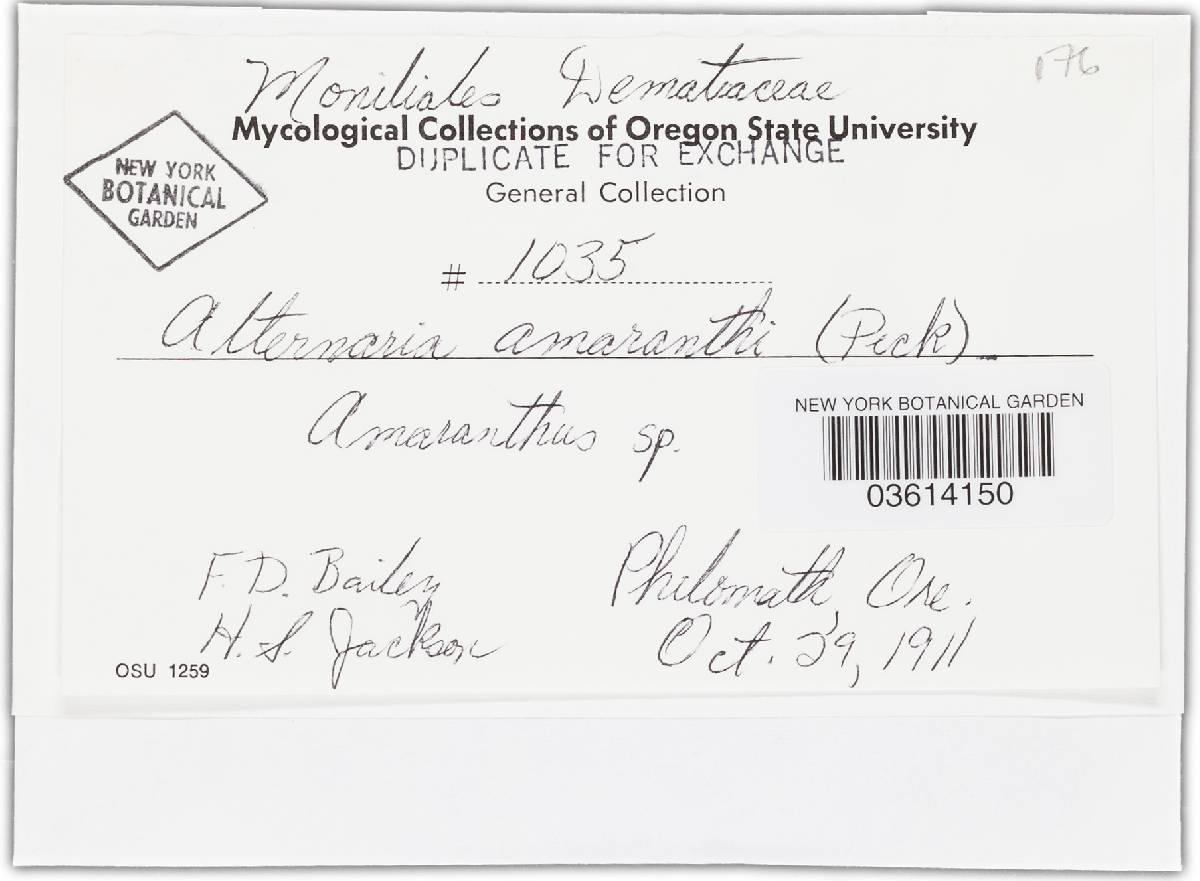 176
Moniliales Dematiaceae
Mycological Collections of Oregon State University
DUPLICATE FOR EXCHANGE
General Collection
NEW YORK
BOTANICAL
GARDEN
# 1035
Alternaria amaranthi (Peck)
Amaranthus sp.
NEW YORK BOTANICAL GARDEN
03614150
F. D. Bailey
H. S. Jackson
Philomath, Ore.
Oct. 29, 1911
OSU 1259